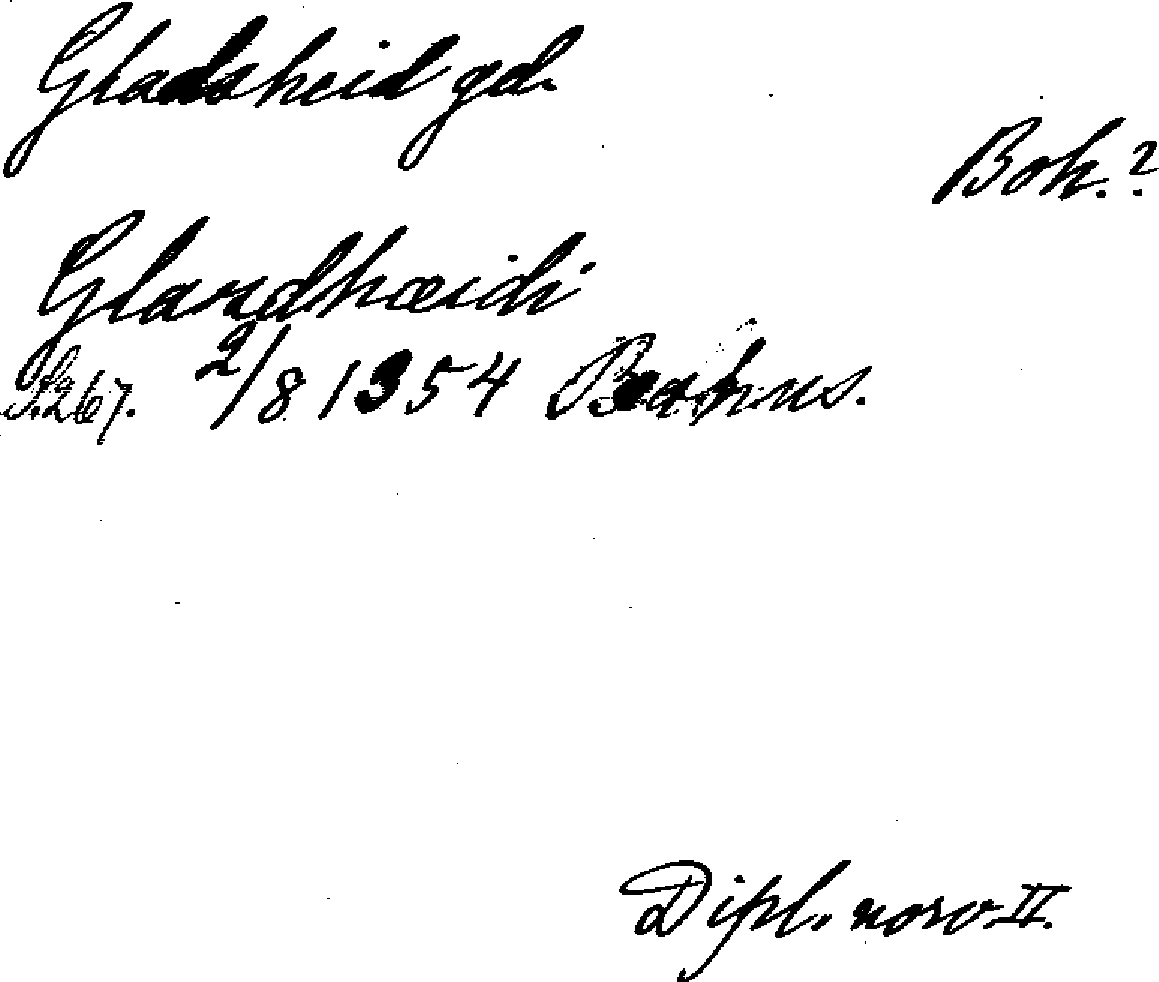 Gladsheid gd.
Boh.?
Glandhæidi
S.267. 2/8 1354 Baahus.
Dipl. norv. II.